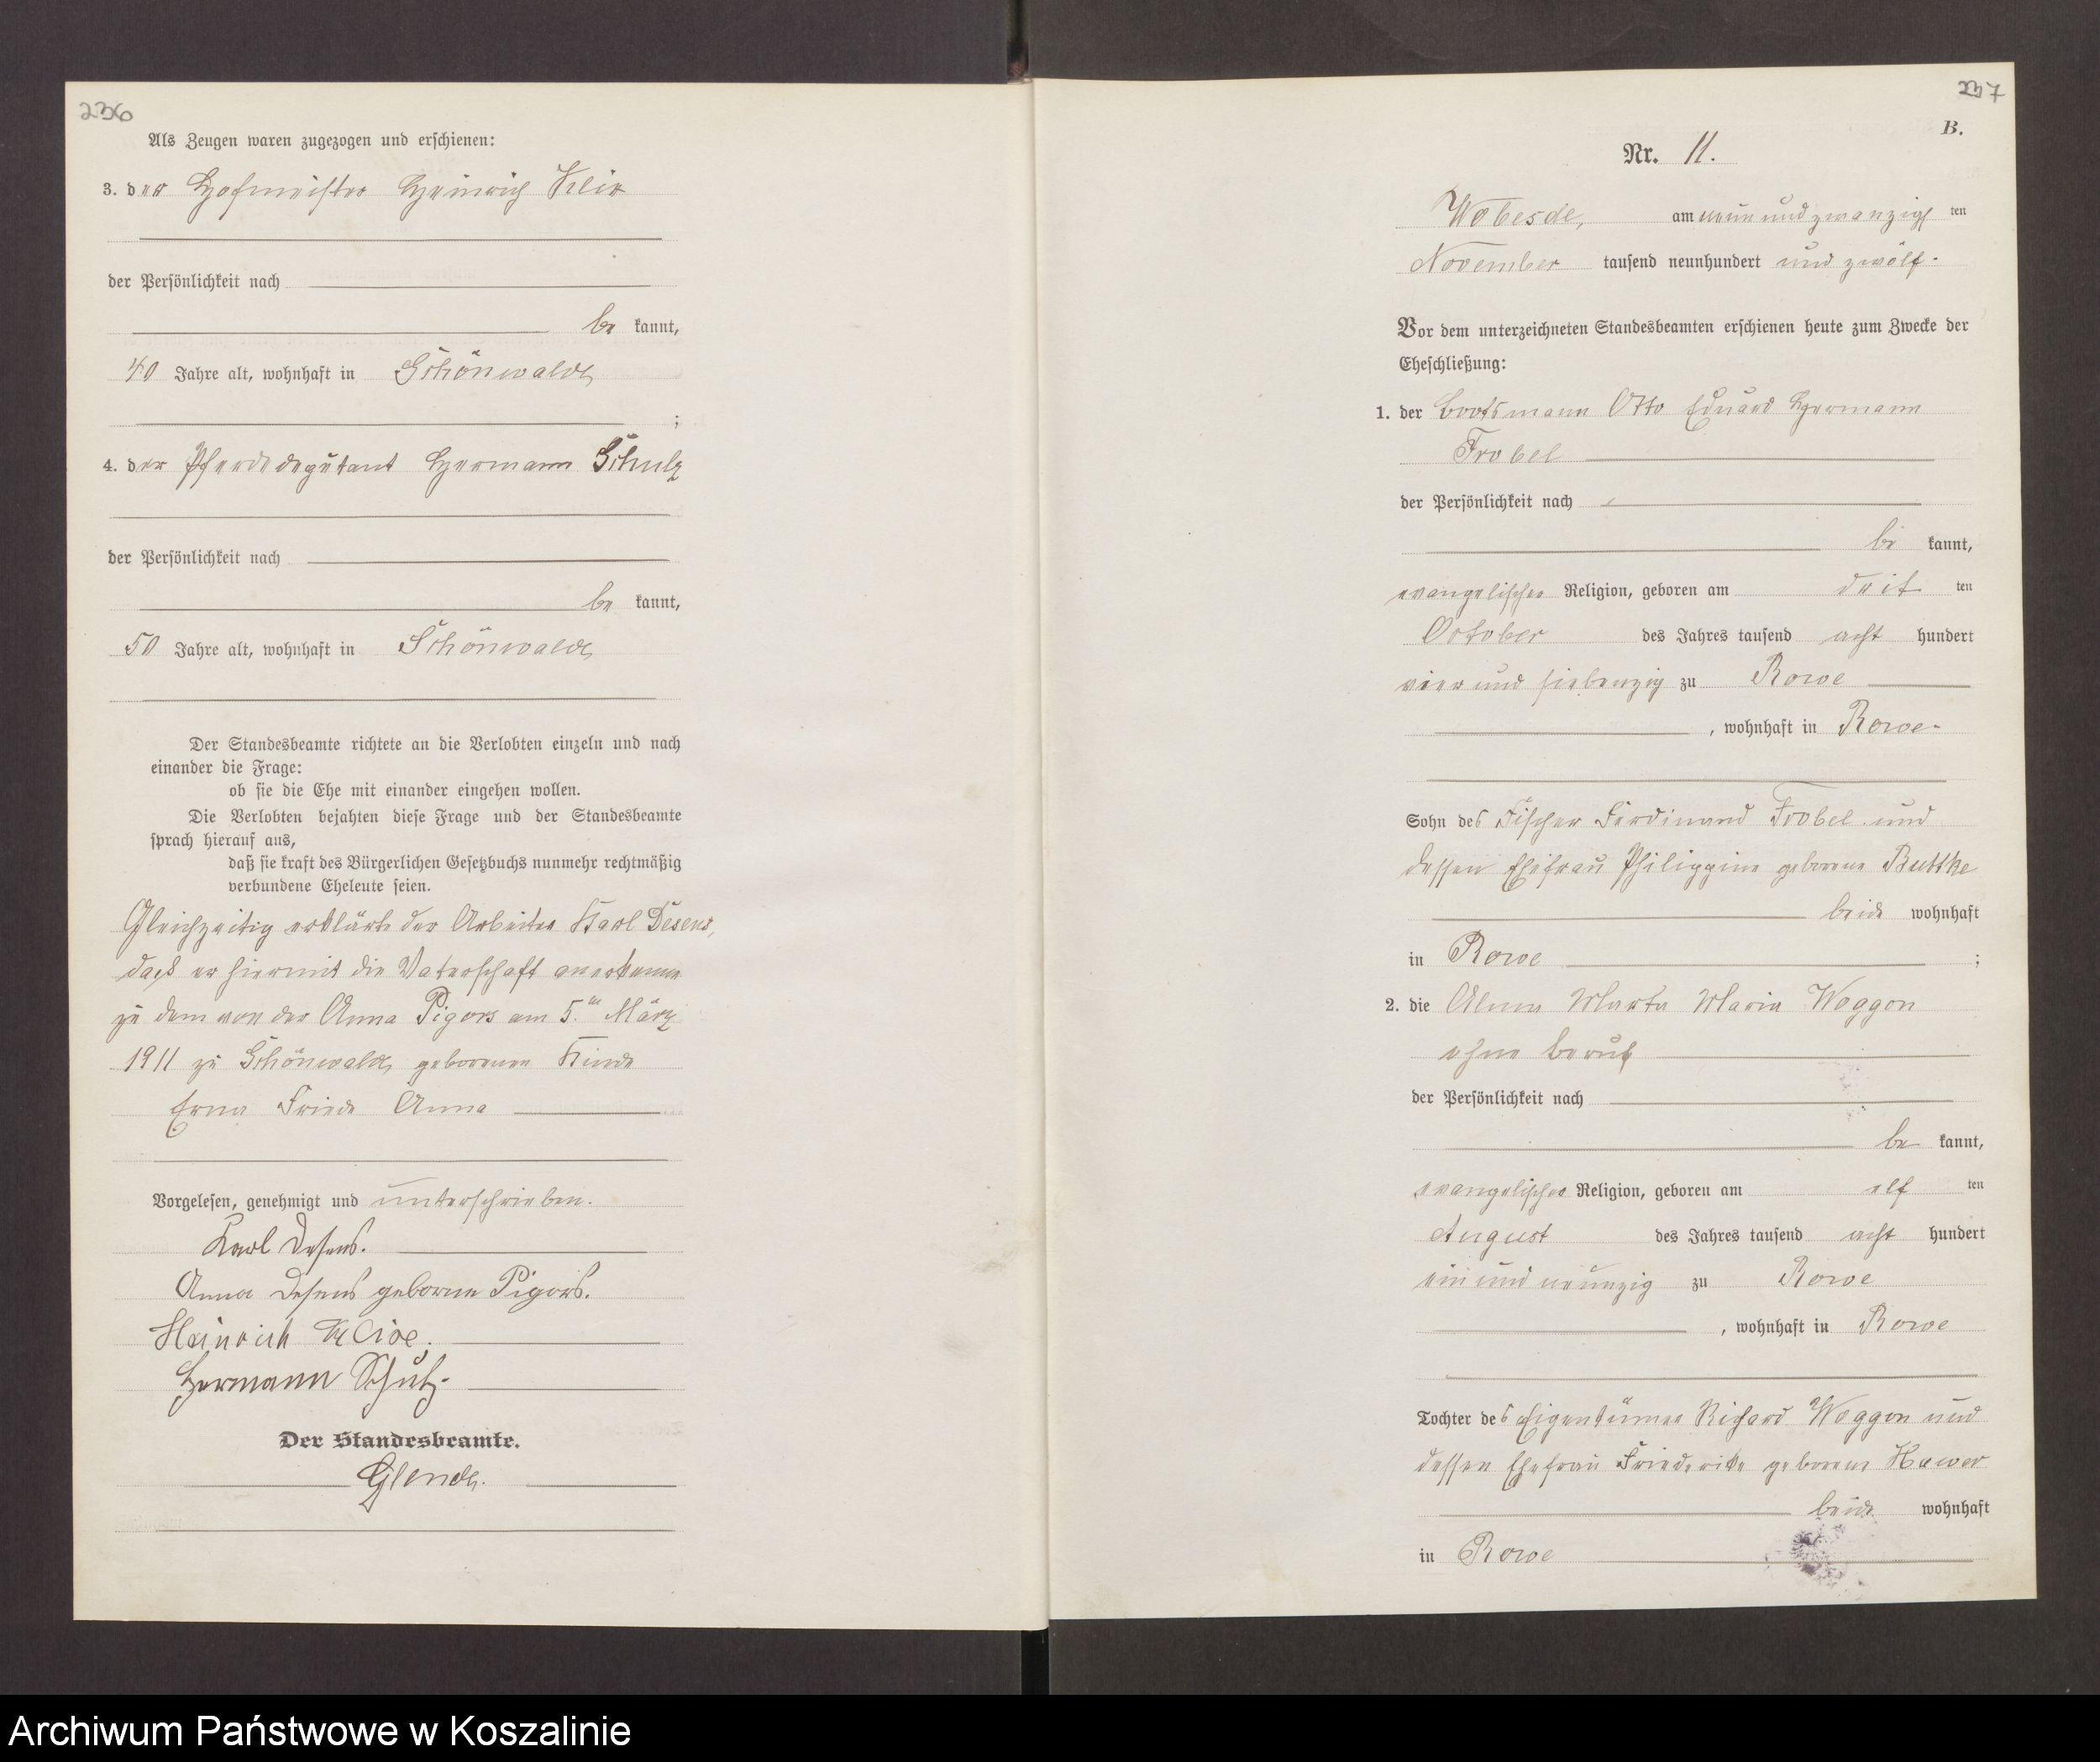 236
Als Zeugen waren zugezogen und erschienen:
3. der Hofmeister Heinrich Klix
der Persönlichkeit nach
be kannt,
40 Jahre alt, wohnhaft in Schönwalde
;
4. der Pferdedeputant Hermann Schulz
der Persönlichkeit nach
be kannt,
50 Jahre alt, wohnhaft in Schönwalde
Der Standesbeamte richtete an die Verlobten einzeln und nach
einander die Frage:
ob sie die Ehe mit einander eingehen wollen.
Die Verlobten bejahten diese Frage und der Standesbeamte
sprach hierauf aus,
daß sie kraft des Bürgerlichen Gesetzbuchs nunmehr rechtmäßig
verbundene Eheleute seien.
Gleichzeitig erklärte der Arbeiter Karl Desens,
daß er hiermit die Vaterschaft anerkenne
zu dem von der Anna Pigors am 5. ten März
1911 zu Schönwalde geborenen Kinde
Erna Friede Anna
Vorgelesen, genehmigt und unterschrieben.
Karl Desens.
Anna Desens geborne Pigors.
Heinrich
Hermann Schulz.
Der Standesbeamte.
Glende.
237
B.
Nr. 11.
Wobesde, am neun und zwanzigs ten
November tausend neunhundert und zwölf.
Vor dem unterzeichneten Standesbeamten erschienen heute zum Zwecke der
Eheschließung:
1. der Bootsmann Otto Eduard Hermann
Frobel
der Persönlichkeit nach
be kannt,
evangelischer Religion, geboren am drit ten
October des Jahres tausend acht hundert
vier und siebenzig zu Rowe
, wohnhaft in Rowe
Sohn des Fischer Ferdinand Frobel und
dessen Ehefrau Philippine geborene Buttke
beide wohnhaft
in Rowe ;
2. die Alma Marta Maria Woggon
ohne Beruf
der Persönlichkeit nach
be kannt,
evangelischer Religion, geboren am elf ten
August des Jahres tausend acht hundert
ein und neunzig zu Rowe
, wohnhaft in Rowe
Tochter des Eigentümer Richard Woggon und
dessen Ehefrau Friederike geborene Hawer
beide wohnhaft
in Rowe
Archiwum Państwowe w Koszalinie